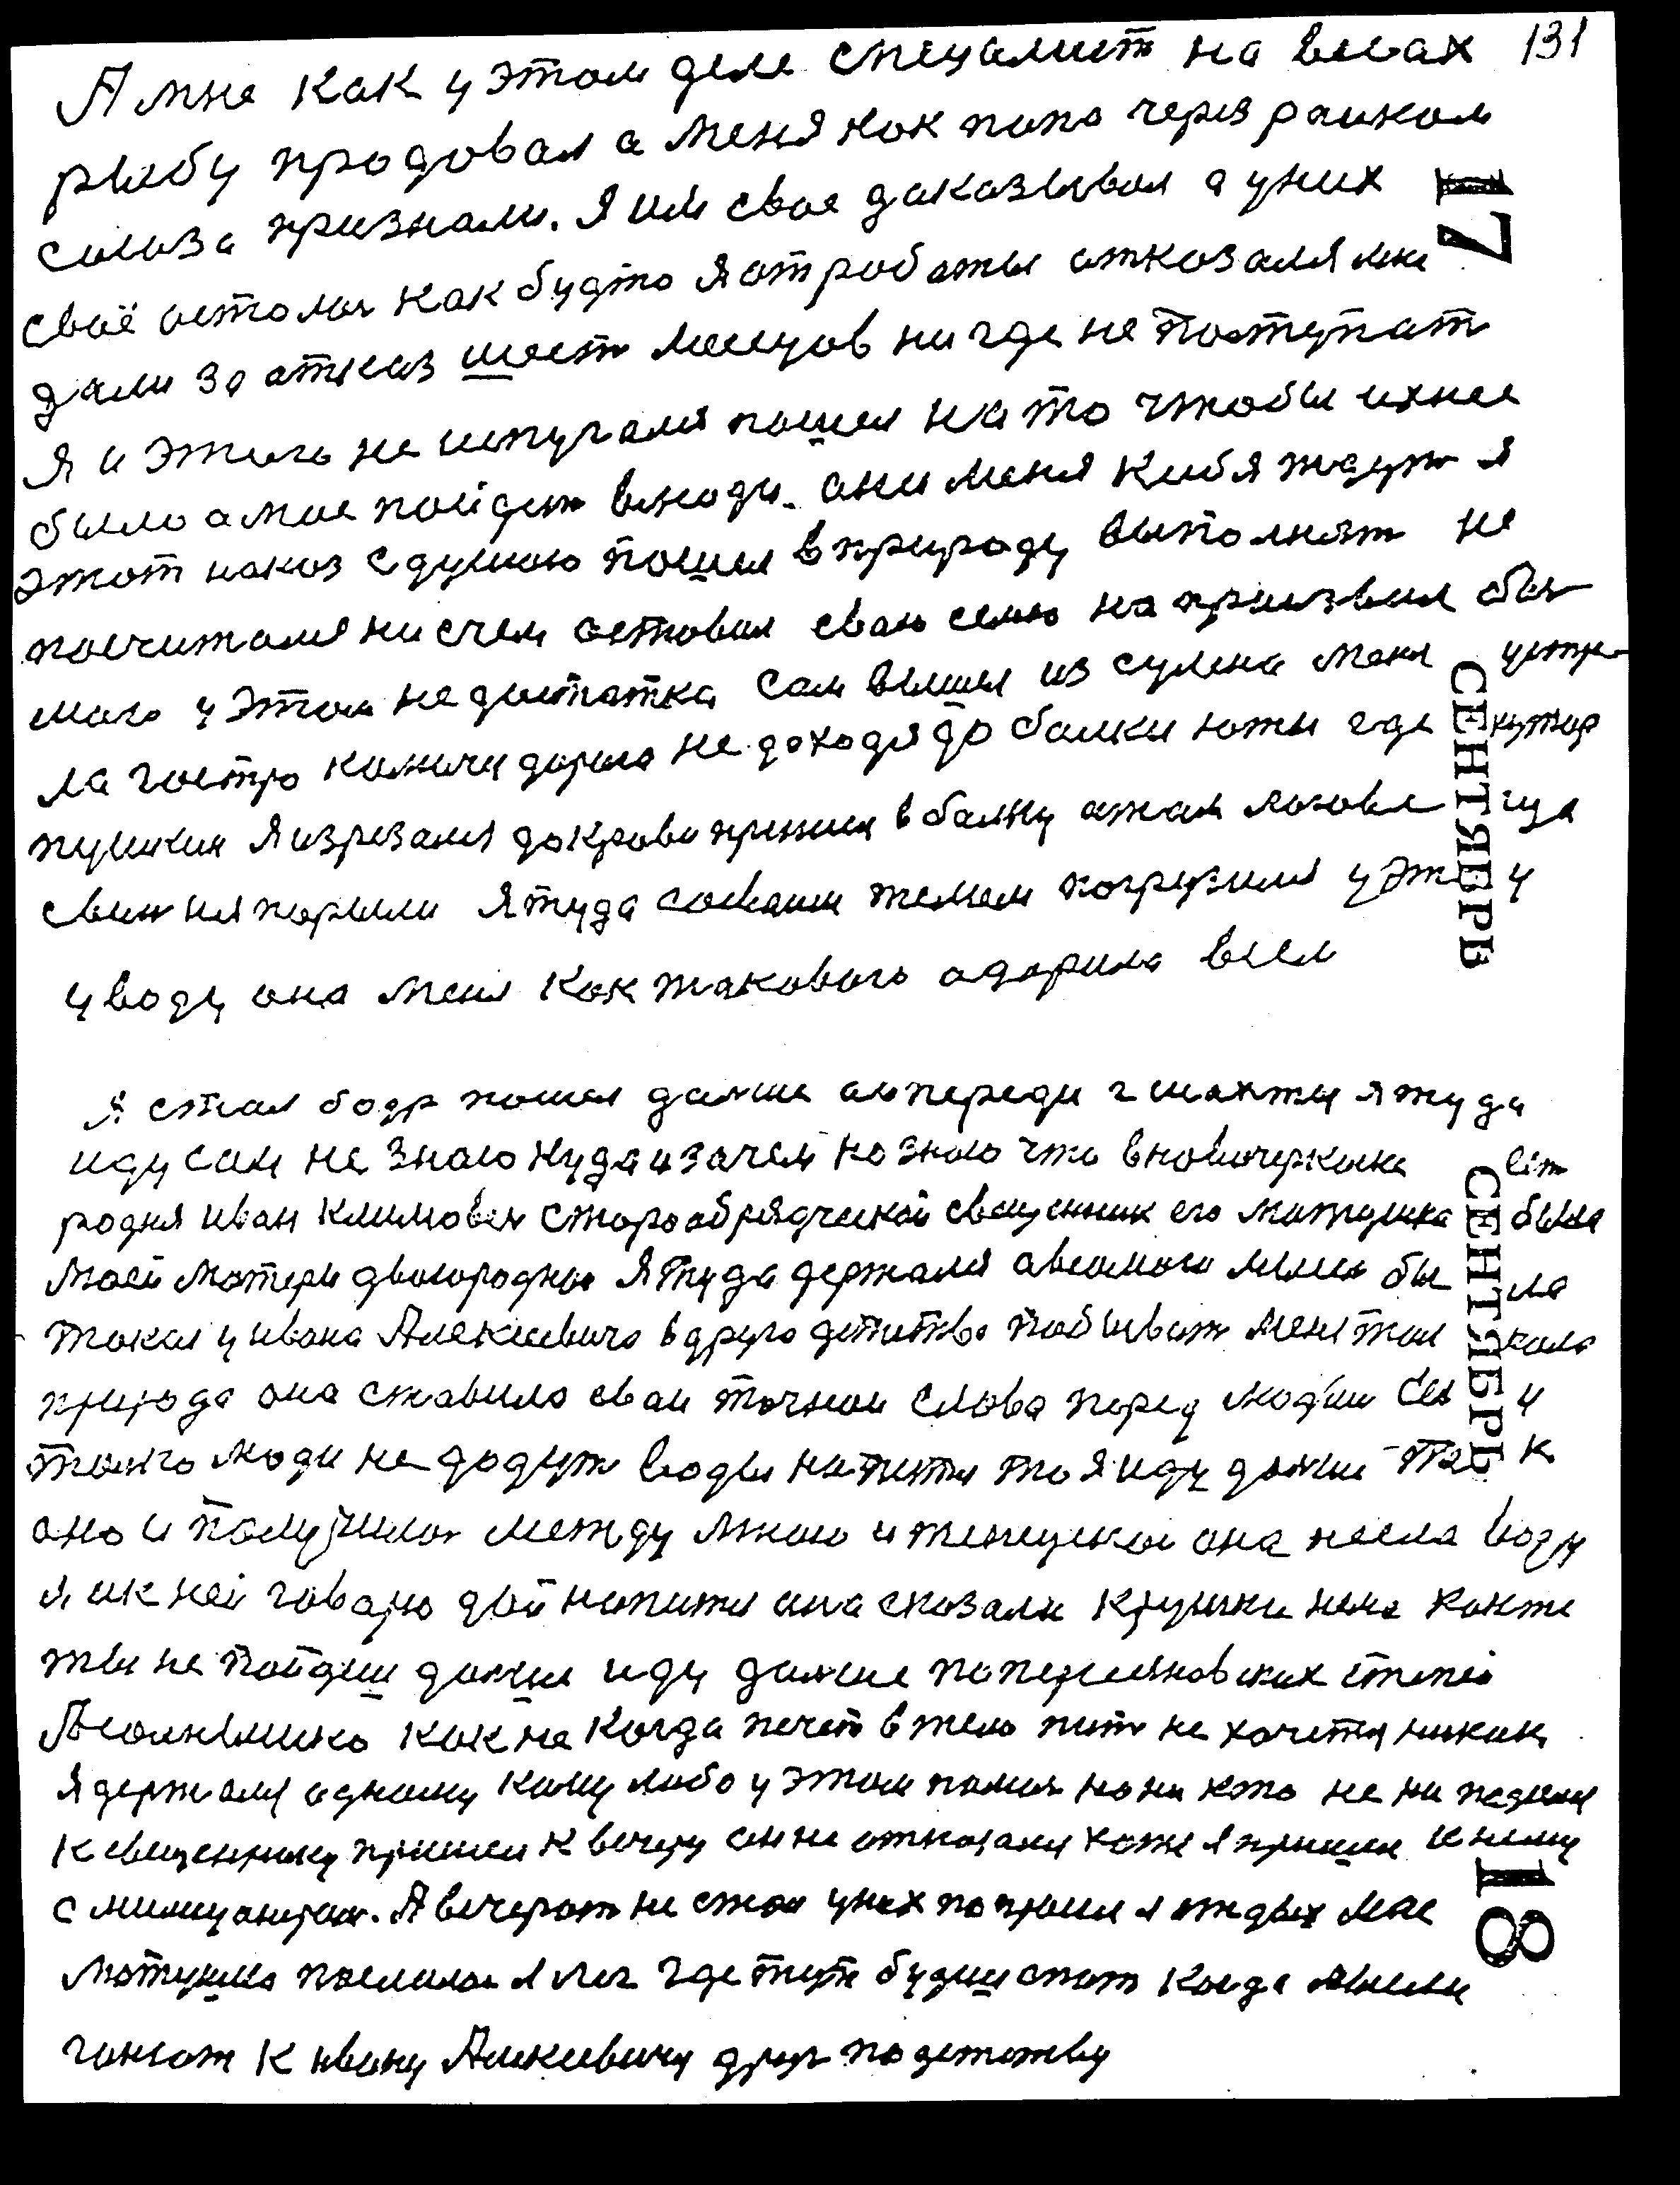 131
А мне как у этом деле специлист на весах
рыбу продовал а меня как попа через раиком
союза признали. Я им свое даказывал а у них
17
своё осталось как будто я от работы атказался мне
дали за атказ шест месецов ни где не поступат
я и этого не испугался пошел на то чтобы ихнее
было а мое пойдет в люди. они меня к себя ждут я
этот наказ с думаю пошел в природу выполнят не
посчитался ни счем оставил сваю семю на произвол
маго у этом не достатка сам вышел из сулина меня устре
ла гостро каличи дорога не доходя до балки юты где хутор
СЕНТЯБРЬ
пушкин я изрезался до крови пришел в балку а там
свиння порыли я туда со своим телом погрузился у эту
у воду она меня как такового адарила всем
я стал бодр пошел далше а в переди г шахты я туда
иду сам не знаю куда и зачем но знаю что в новочеркаске ест
родня иван климович старообрядческой священник его матушка была
СЕНТЯБРЬ
маей матери двоюродная я туда держался
такая у ивана Алексиевича в друга детитва побыват меня там
природа она ставила сваи точнои слова перед людми если
толко люди не дадут воды напится то я иду далше так
оно и получилос между мною и женщиной она несла воду
я ик ней говарю дай напится она сказала кружки нема
ты не пойдеш далше иду далше по персияновских степей
Асолнышко как не когда печет в тело пит не хочется никак
я держался одному каму либо у этом помоч но ни кто не ни
к священнику пришел к вечеру он не отказался хотя я пришел к нему
18
А вечерят не стал у них попросил я отдых мне
матушка постлала я лег где тут будиш спат когда мысли
гоняют к ивану Алексиевичу друг по детитву